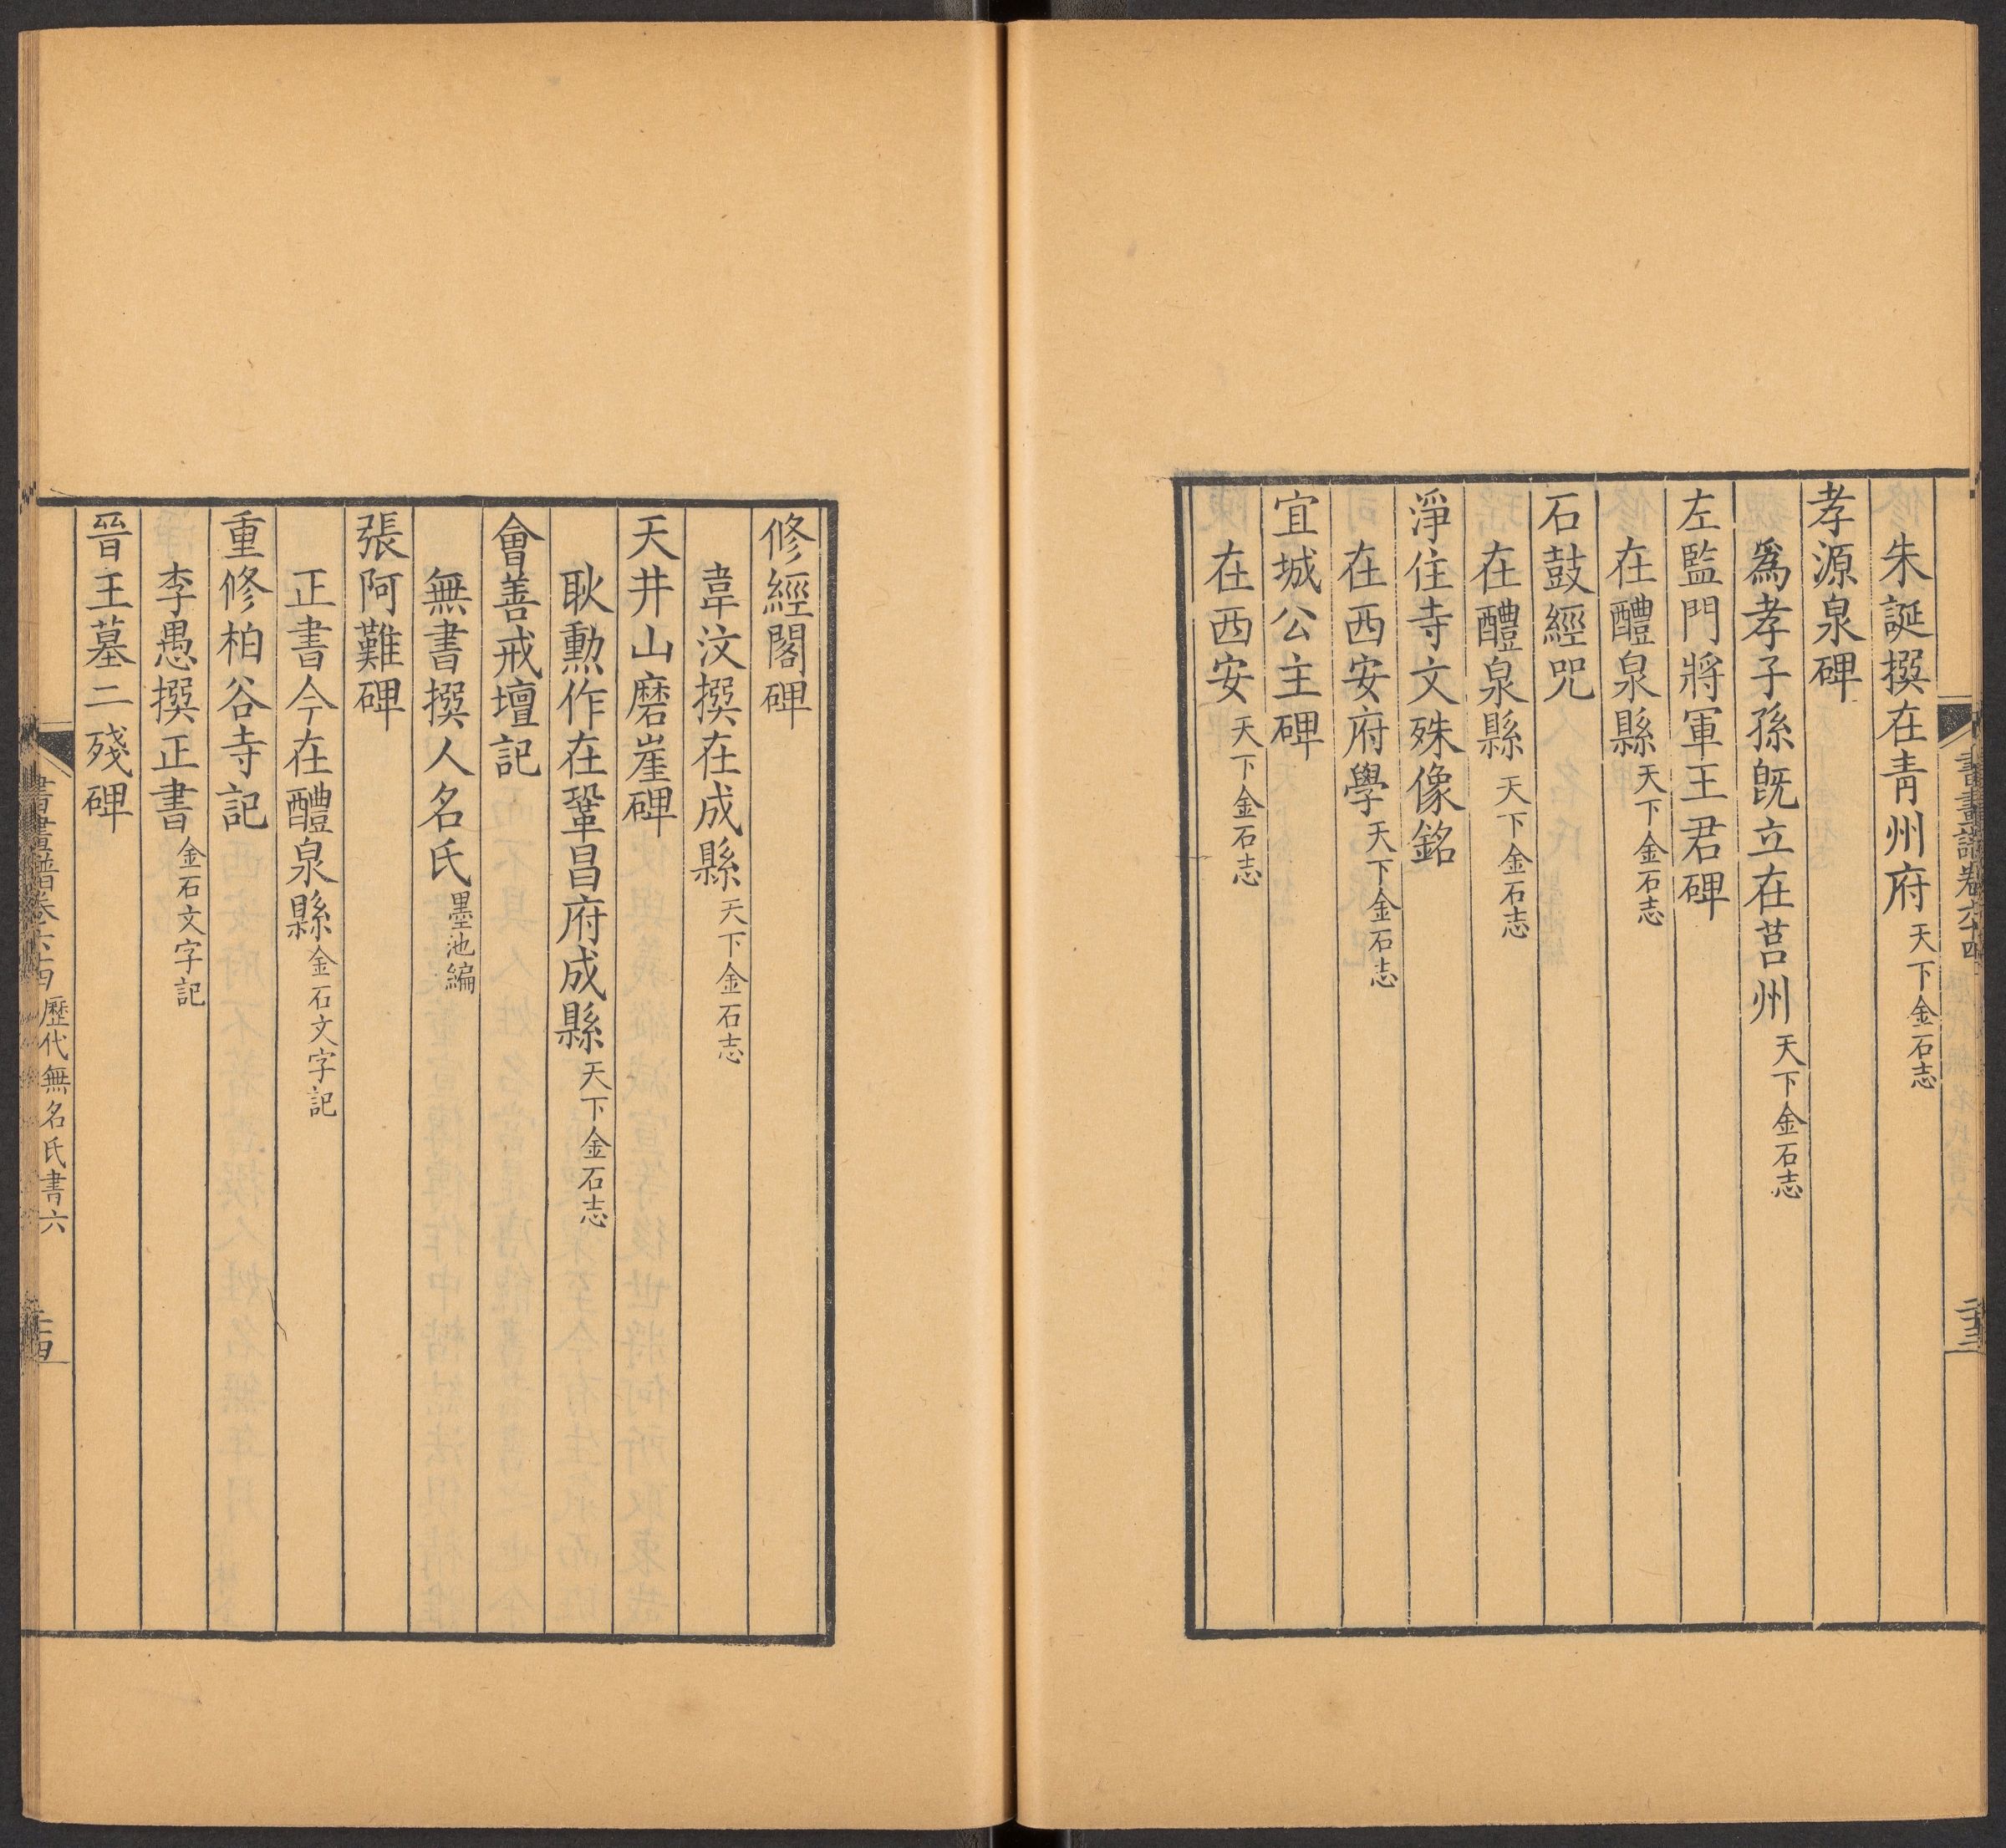 朱誕撰在青州府天下金石志
孝源泉碑
爲孝子孫旣立在莒州天下金石志
左監門將軍王君碑
在醴泉縣天下金石志
石鼓經咒
在醴泉縣天下金石志
淨住寺文殊像銘
在西安府學天下金石志
宜城公主碑
在西安天下金石志
修經閣碑
韋汶撰在成縣天下金石志
天井山磨崖碑
耿勲作在鞏昌府成縣天下金石志
會善戒壇記
無書撰人名氏墨池編
張阿難碑
正書今在醴泉縣金石文字記
重修柏谷寺記
李愚撰正書金石文字記
晉王墓二殘碑
書畫譜卷六十四 歷代無名氏書六